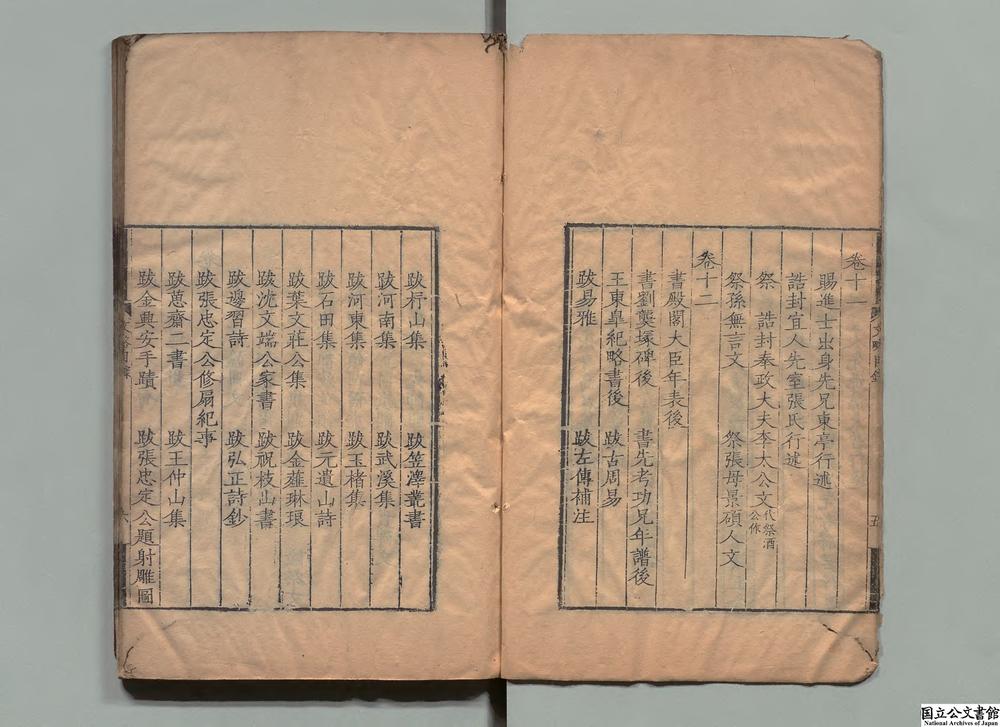 卷十一
賜進士出身先兄東亭行述
誥封宜人先室張氏行述
祭　誥封奉政大夫李太公文代祭酒公作
祭孫無言文　祭張母景碩人文
卷十二
書殿閣大臣年表後
書劉龑塚碑後　書先考功兄年譜後
王東臯紀略書後　跋古周易
跋易雅　跋左傳補注
五
跋杼山集　跋笠澤叢書
跋河南集　跋武溪集
跋河東集　跋玉楮集
跋石田集　跋元遺山詩
跋葉文莊公集　跋金薤琳琅
跋沈文端公家書　跋祝枝山書
跋邊習詩　跋弘正詩鈔
跋張忠定公修扇紀事
跋蒠齋二書　跋王仲山集
跋金興安手蹟　跋張忠定公題射雕圖
六
国立公文書館
National Archives of Japan